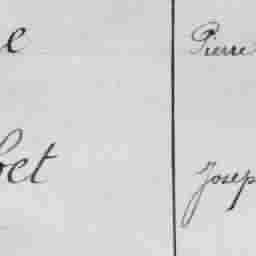 e Pierre
bet Josep